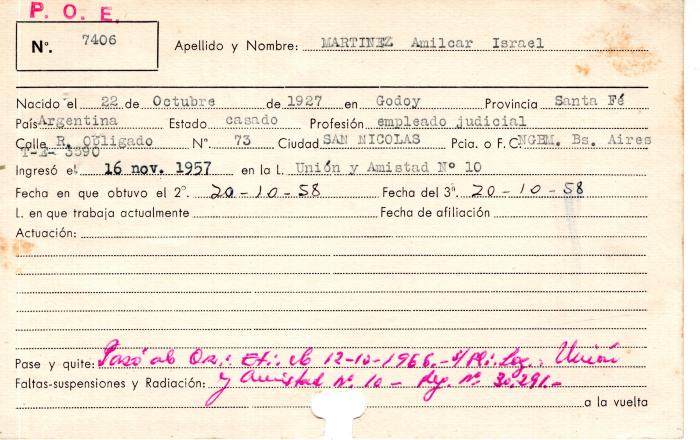 P. O. E.
N°. 7406
Apellido y Nombre: MARTINEZ Amilcar Israel
Nacido el 22 de Octubre de 1927 en Godoy Provincia Santa Fé
País Argentina Estado casado Profesión empleado judicial
Calle R. Obligado N°. 73 Ciudad SAN NICOLAS Pcia. o F.C. NGBM. Bs. Aires
T-E- 3590
Ingresó el 16 nov. 1957 en la L. Unión y Amistad Nº 10
Fecha en que obtuvo el 2°. 20-10-58 Fecha del 3°. 20-10-58
L. en que trabaja actualmente Fecha de afiliación
Actuación:
Pase y quite: Pasó al Or.: Et.: el 12-10-1966.- s/Pl: Log.: Unión
Faltas-suspensiones y Radiación: y Amistad Nº 10 - Reg. Nº 30.291.-
a la vuelta